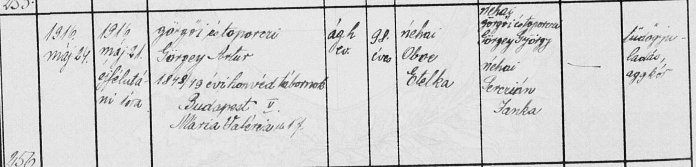 255.
1916 máj 24.
1916 máj 21. éjfélutáni óra
görgői és toporczi
Görgey Artur
1848/49 évi honvéd tábornok
Budapest V.
Mária Valéria u 17.
ágh ev
98. éves
néhai
Oboe
Etelka
néhai
görgői és toporczi
Görgey György
néhai
Janka
—
aggkór
256